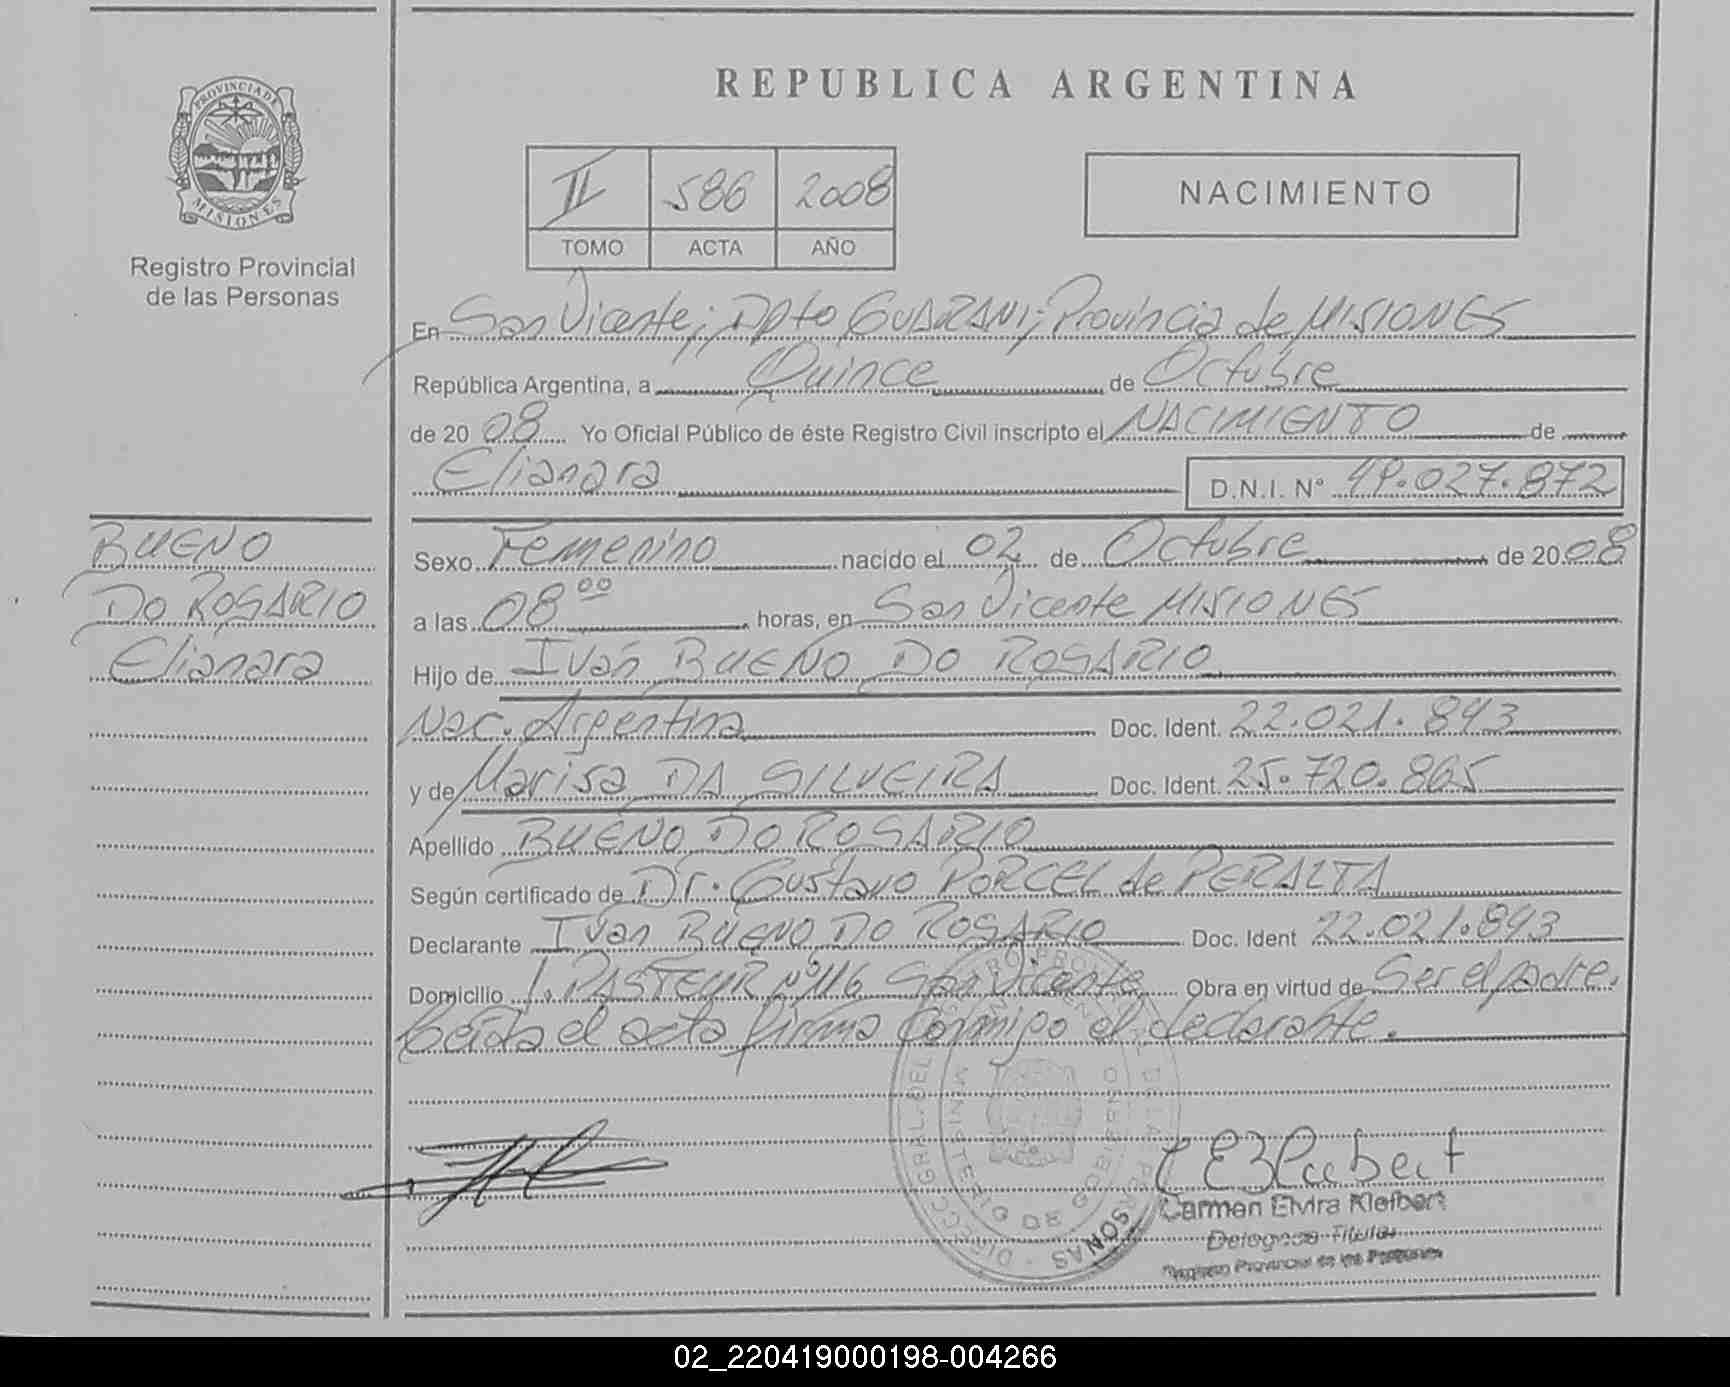 REPUBLICA ARGENTINA
PROVINCIA DE
MISIONES
Registro Provincial
de las Personas
II 586 2008
TOMO ACTA AÑO
NACIMIENTO
En San Vicente; Dpto GUARANI; Provincia de MISIONES
República Argentina, a Quince de Octubre
de 2008 Yo Oficial Público de éste Registro Civil inscripto el NACIMIENTO de
Elianara D.N.I. Nº 49.027.872
BUENO
DO ROSARIO
Elianara
Sexo Femenino nacido el 02 de Octubre de 2008
a las 08 00 horas, en San Vicente MISIONES
Hijo de Iván BUENO DO ROSARIO
Nac. Argentina Doc. Ident. 22.021.893
y de Marisa DA SILVEIRA Doc. Ident. 25.720.865
Apellido BUENO DO ROSARIO
Según certificado de Dr. Gustavo PORCEL de PERALTA
Declarante Ivan BUENO DO ROSARIO Doc. Ident 22.021.893
Domicilio PASTEUR Nº 116 San Vicente Obra en virtud de Ser el padre.
Leída el acta firma conmigo el declarante.
DIRECC GRAL. DEL
DE LAS PERSONAS
MINISTERIO DE GOBIERNO
Carmen Elvira Kleibert
Delegada Titular
Registro Provincial de las Personas
02_220419000198-004266